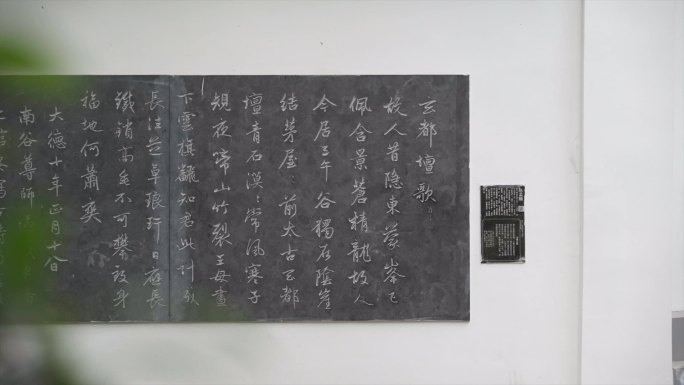 玄都壇歌
故人昔隱東蒙峯已
佩含景蒼精龍故人
今居子午谷獨在陰崖
結茅屋〻前太古玄都
壇青石漠〻常風寒子
規夜啼山竹裂王母晝
下雲旗飜知君此計成
長往芝草琅玕日應長
鐵鎖高垂不可攀致身
福地何蕭爽
大德十年正月十八日
南谷尊師